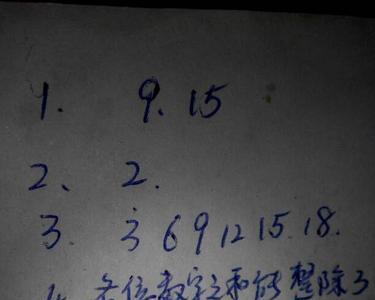 1. 9. 15
2、 2.
3. 3 6 9 12 15 18.
各位数字之和能整除3